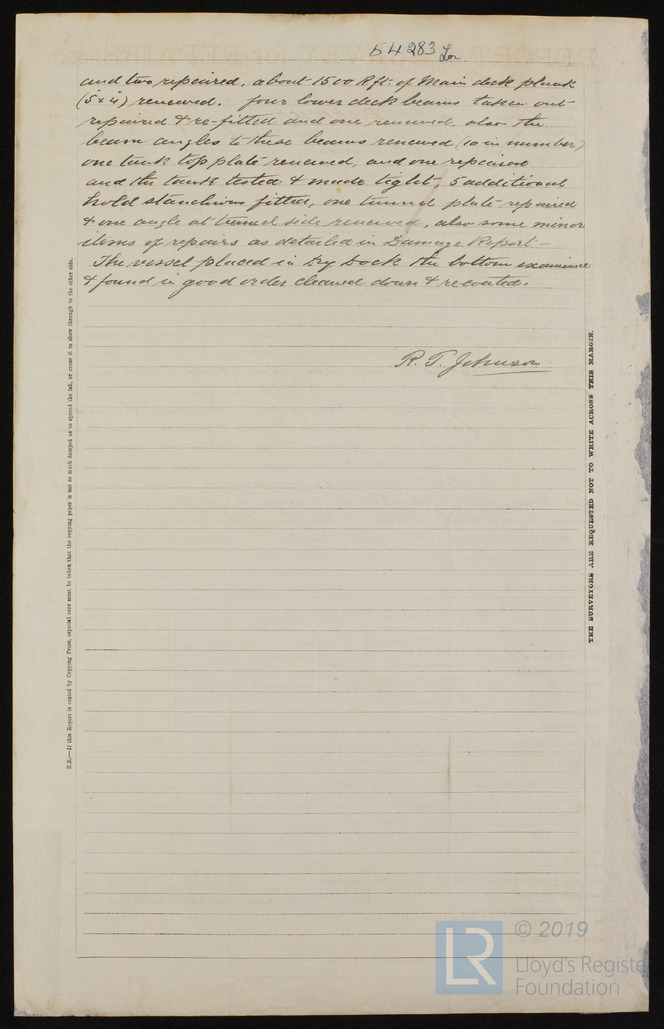 54283 Lon
and two repaired, about 1500 R ft: of Main deck plank
(5"x 4") renewed. four lower deck beams taken out
repaired & re-fitted and one renewed, also the
beam angles to these beams renewed (10 in number)
one tank top plate renewed, and one repaired
and the tank tested & made tight, 5 additional
hold stanchions fitted, one tunnel plate repaired
& one angle at tunnel side renewed, also some minor
items of repairs as detailed in Damage Report:-
The vessel placed in Dry Dock the bottom examined
& found in good order cleaned down & recoated.
R. T. Johnson
N.B.—If this Report is copied by Copying Press, especial care must be taken that the copying paper is not so much damped as to spread the ink, or cause it to show through to the other side.
THE SURVEYORS ARE REQUESTED NOT TO WRITE ACROSS THIS MARGIN.
LR
© 2019
Lloyd's Register
Foundation